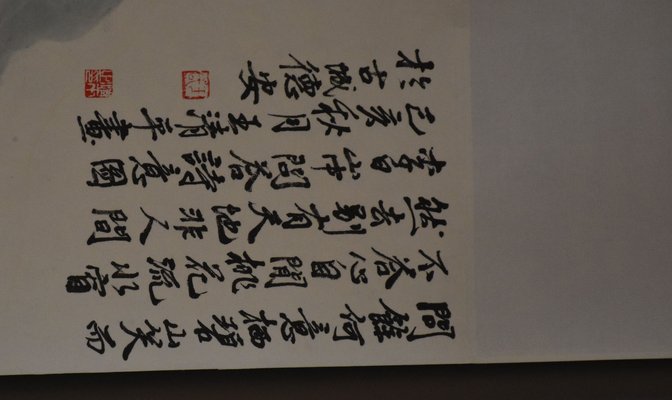 問餘何意栖碧山笑而
不答心自閒桃花流水窅
然去別有天地非人間
李白山中問答詩意圖
己亥秋月王清平畫
於古城德安